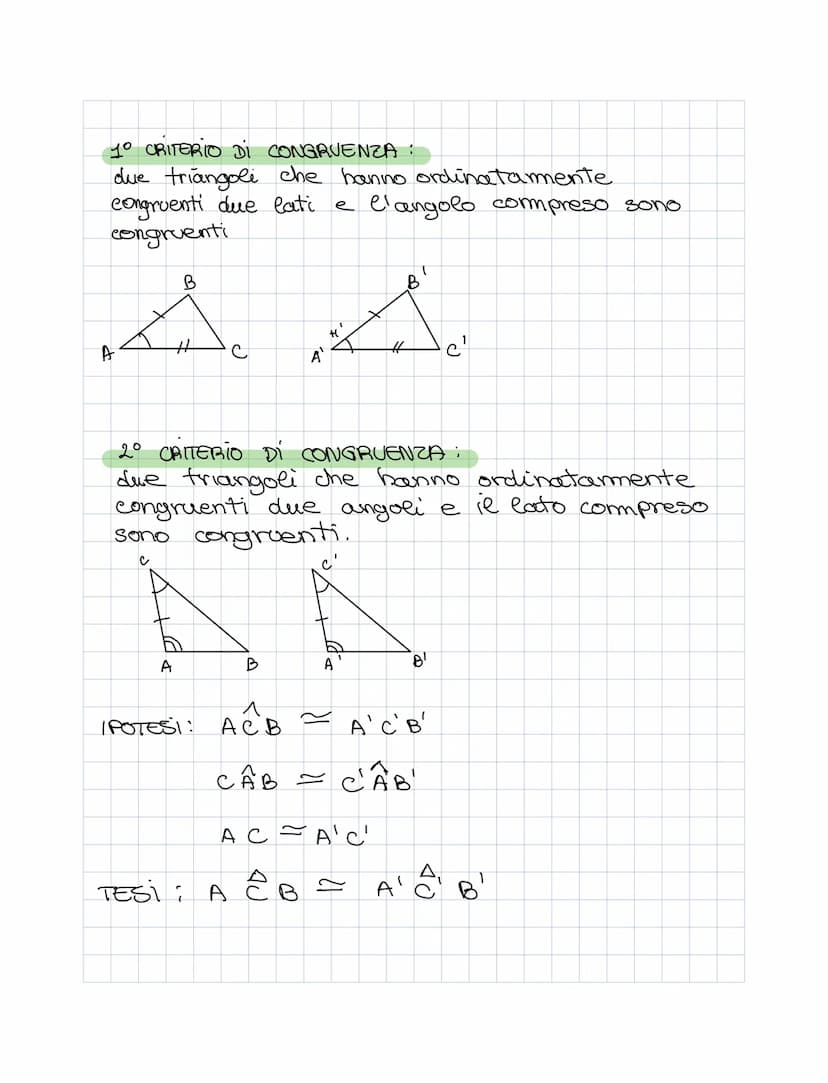 1° CRITERIO Di CONGRUENZA :
due triangoli che hanno ordinatamente
congruenti due lati e l'angolo compreso sono
congruenti
B B'
A C A' C'
2° CRITERIO Di CONGRUENZA :
due triangoli che hanno ordinatamente
congruenti due angoli e il lato compreso
sono congruenti.
C C'
A B A' B'
IPOTESi: AĈB ≅ A'C'B'
CÂB ≅ C'Â'B'
AC ≅ A'C'
TESi : A C^△ B ≅ A' C'^△ B'